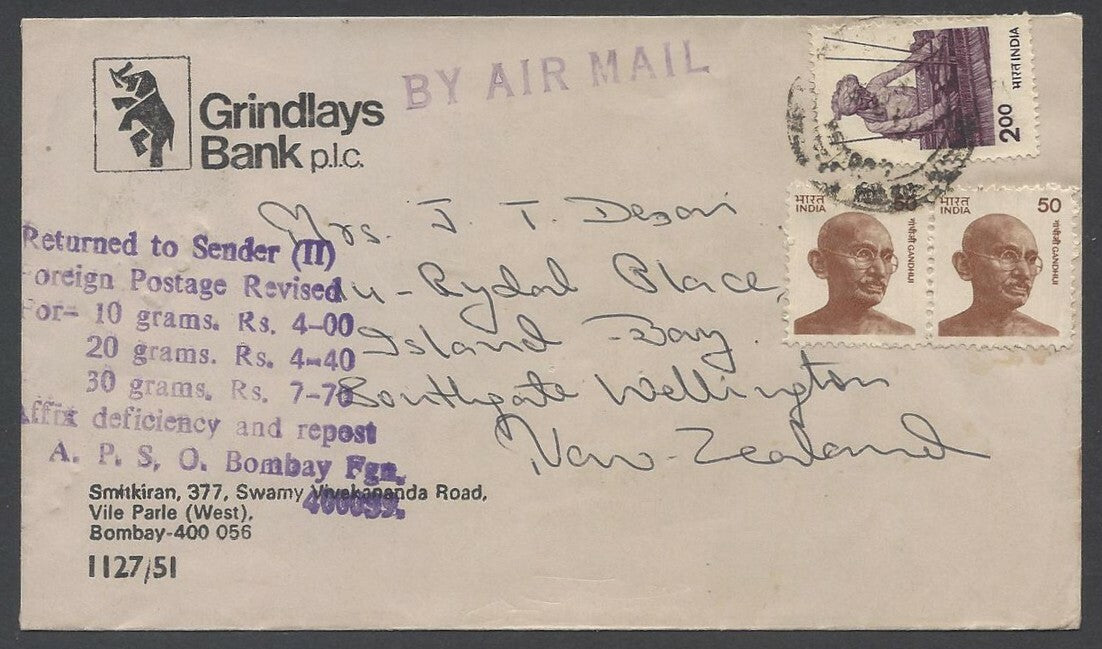 Grindlays
Bank p.l.c.
BY AIR MAIL
2.00 भारत INDIA
भारत
INDIA
50
गांधीजी GANDHIJI
भारत
INDIA
50
गांधीजी GANDHIJI
Mrs. J. T. Desai
Rydal Place,
Island Bay.
Southgate Wellington
New-Zealand
Returned to Sender (II)
Foreign Postage Revised
For- 10 grams. Rs. 4-00
20 grams. Rs. 4-40
30 grams. Rs. 7-70
Affix deficiency and repost
A. P. S, O. Bombay Fgn.
400099.
Smitkiran, 377, Swamy Vivekananda Road,
Vile Parle (West),
Bombay-400 056
1127/51